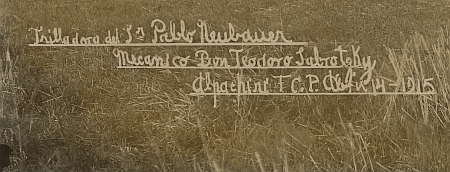 Trilladora del Sr Pablo Neubauer
Mecanico Don Teodoro Sabrotzky
Alpachiri F.C.P. Abril 14-1915